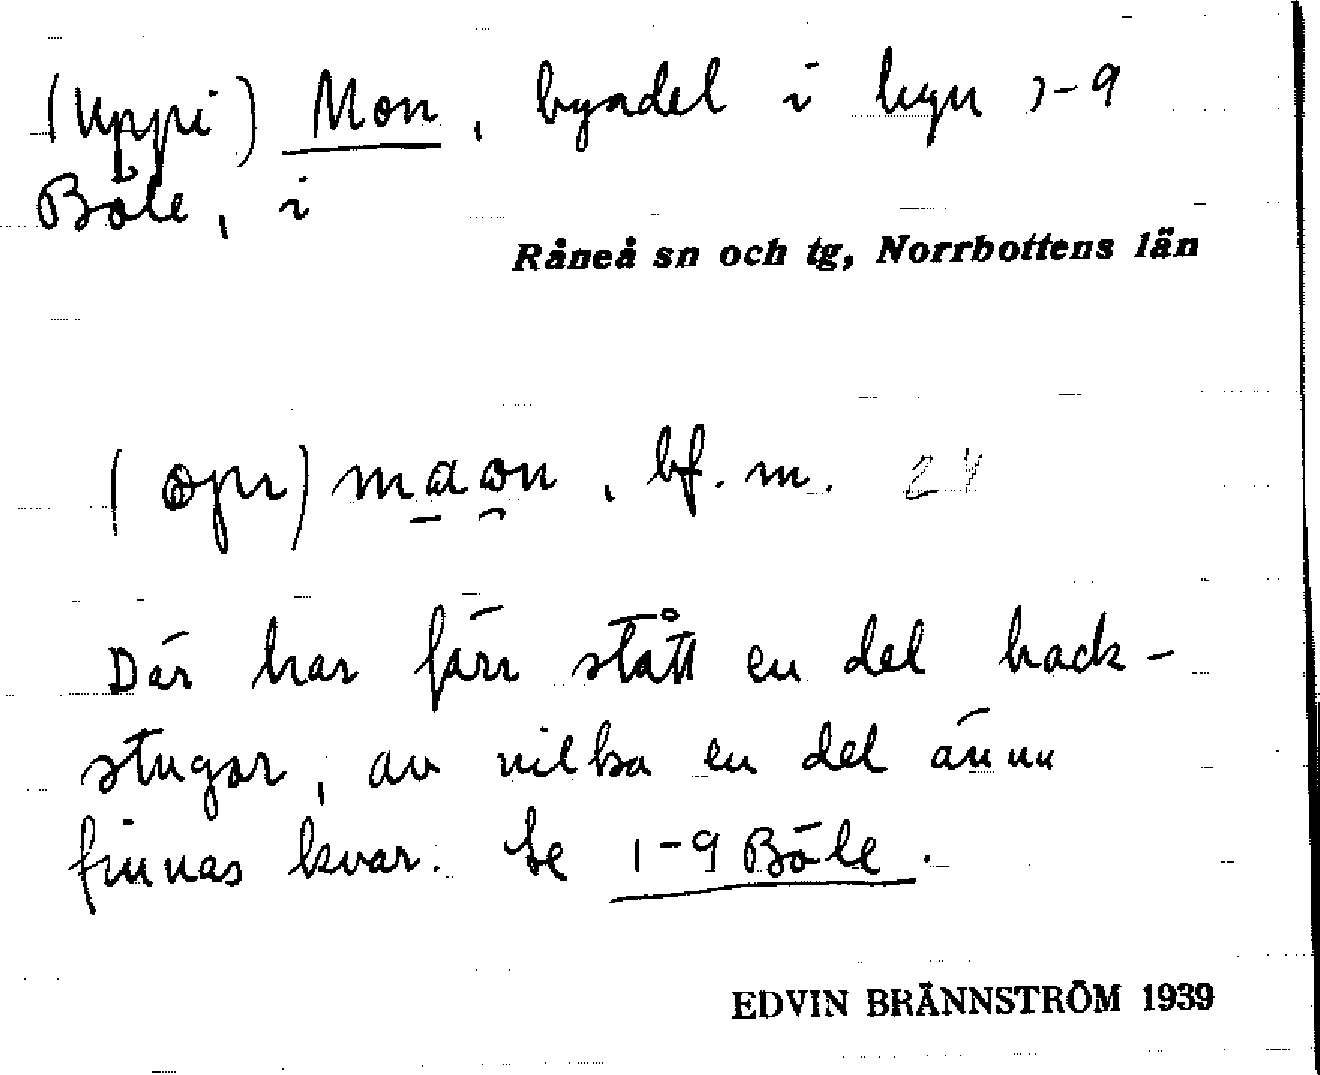 (Uppi) Mon, bysdel i byn 1-9
Böle, i
Råneå sn och tg, Norrbottens län
(opı) maon, bf. m. 24
Där har förr stått en del back-
stugor, av vilka en del ännu
finnas kvar. Se 1-9 Böle.
EDVIN BRÄNNSTRÖM 1939